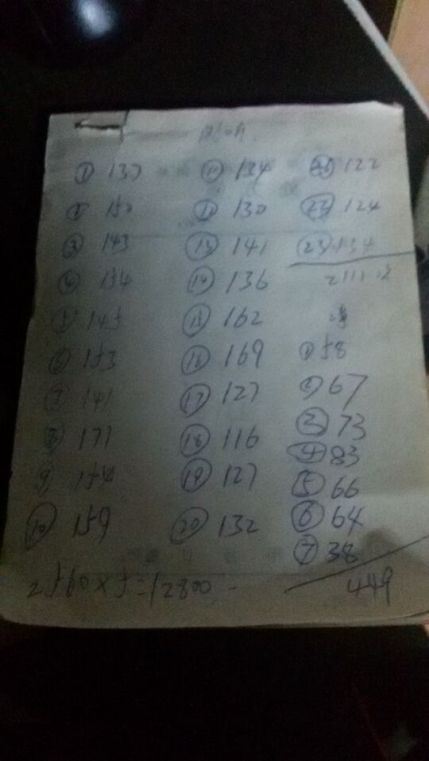 ① 137
② 150
③ 143
④ 154
⑤ 145
⑥ 153
⑦ 141
⑧ 171
⑨ 154
⑩ 159
⑪ 134
⑫ 130
⑬ 141
⑭ 136
⑮ 162
⑯ 169
⑰ 127
⑱ 116
⑲ 127
⑳ 132
㉑ 122
㉒ 124
㉓ 134
① 58
② 67
③ 73
④ 83
⑤ 66
⑥ 64
⑦ 38
449
2560×5=12800